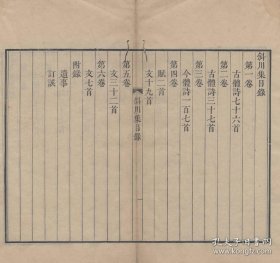 斜川集目錄
第一卷
古體詩七十六首
第二卷
古體詩三十七首
第三卷
今體詩一百七首
第四卷
賦二首
文十九首
斜川集目錄
一
第五卷
文三十二首
第六卷
文七首
附錄
遺事
訂誤
孔夫子旧书网